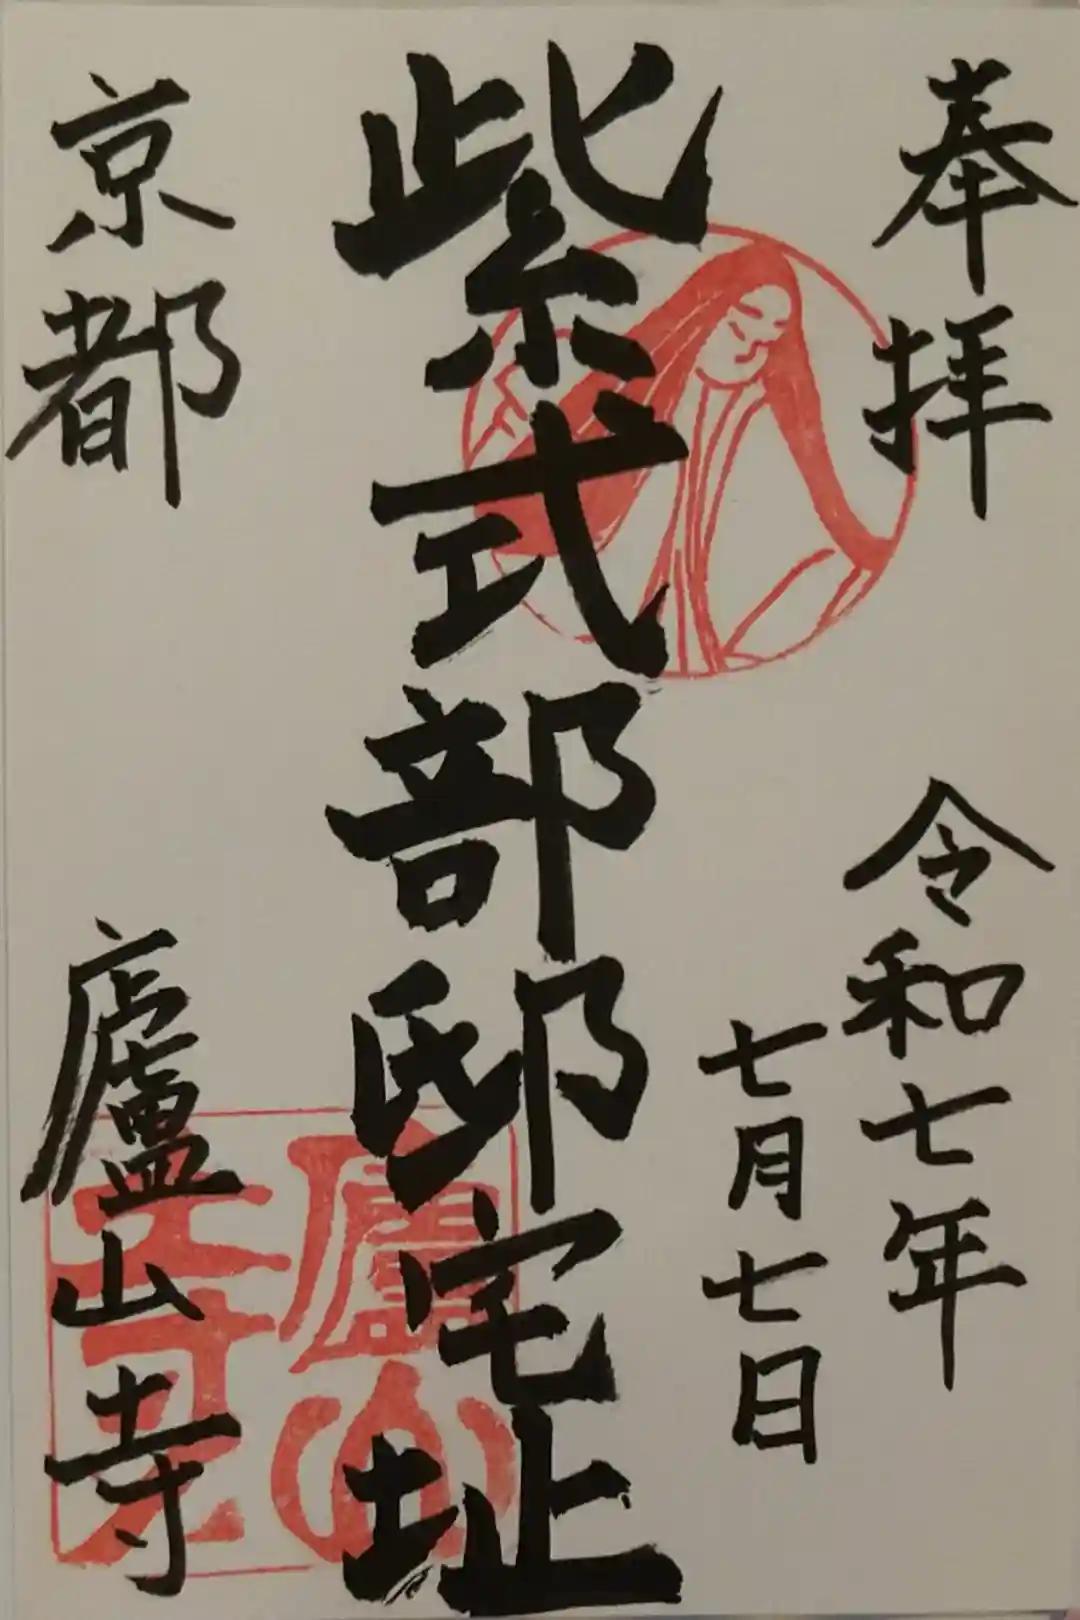 奉拝
令和七年
七月七日
紫式部邸宅址
京都
廬山寺